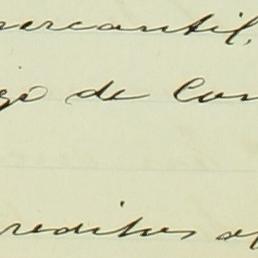 mercantil,
go de Con
creditos